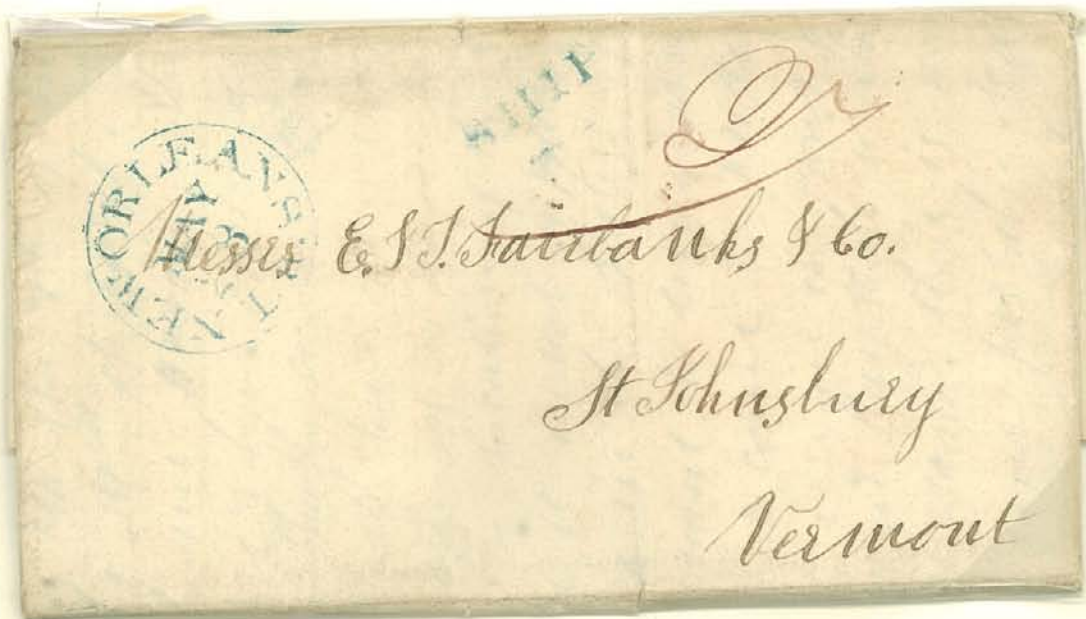 SHIP
NEW ORLEANS LA
MAY
Messrs E. & T. Fairbanks & Co.
St Johnsbury
Vermont